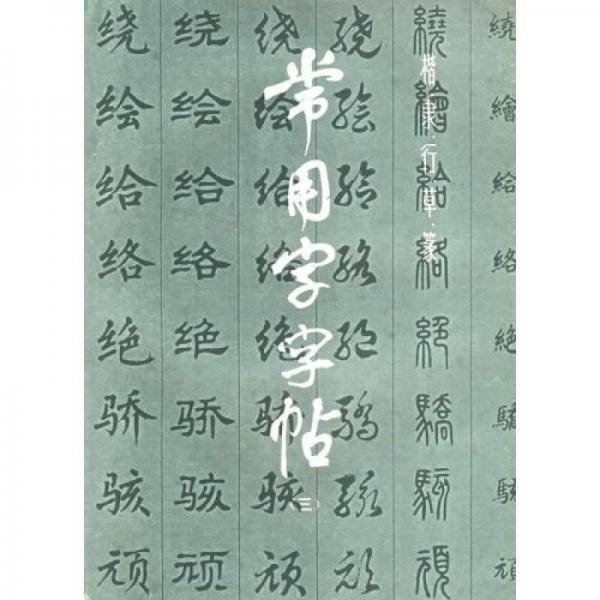 常用字字帖
（三）
楷·隶·行·草·篆
绕 绕 绕 绕 繞 繞
绘 绘 绘 绘 繪 繪
给 给 给 给 給 給
络 络 络 络 絡 絡
绝 绝 绝 绝 絕 絶
骄 骄 骄 骄 驕 驕
骇 骇 骇 骇 駭 駭
顽 顽 顽 顽 頑 頑